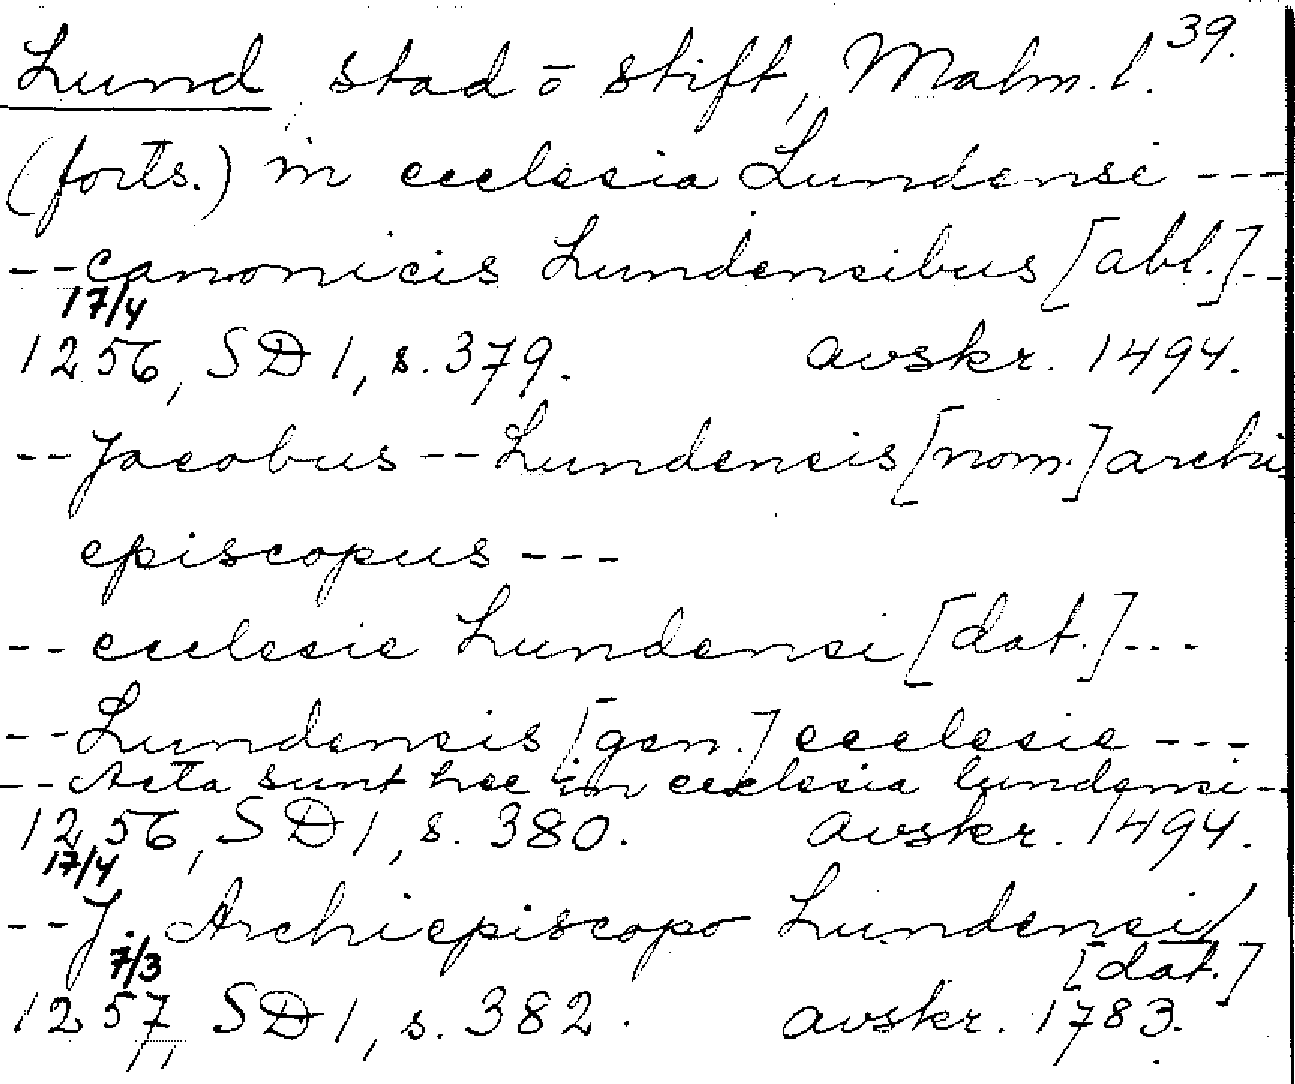 Lund stad o stift, Malm. l. 39.
(forts.) in ecclesia Lundensi ---
-- canonicis Lundensibus [abl.] --
17/4
1256, SD 1, s. 379. avskr. 1494.
-- Jacobus -- Lundensis [nom.] archi
episcopus ---
-- ecclesie Lundensi [dat.] ---
-- Lundensis [gen.] ecclesie ---
-- Acta sunt hec in ecclesia lundensi --
1256, SD 1, s. 380. avskr. 1494.
17/4
-- J. Archiepiscopo Lundensi
7/3 [dat.]
1257, SD 1, s. 382. avskr. 1783.